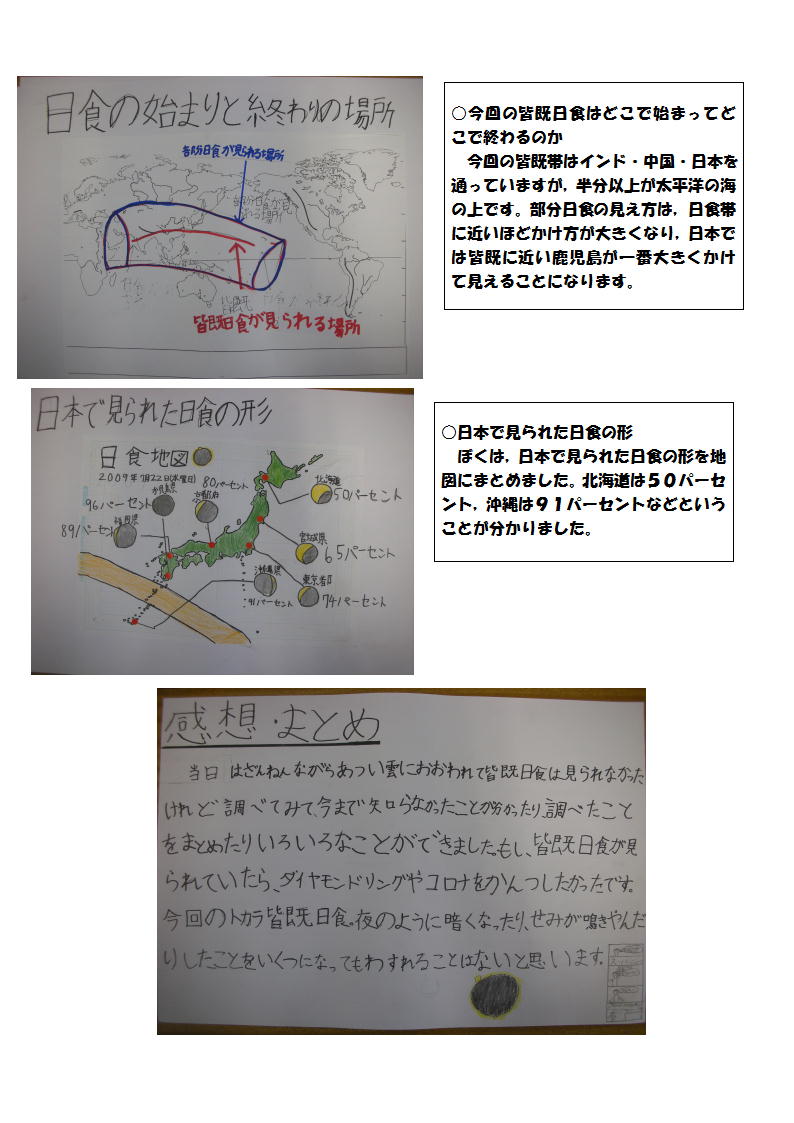 日食の始まりと終わりの場所
部分日食が見られる場所
皆既日食が見られる場所
○今回の皆既日食はどこで始まってど
こで終わるのか
　今回の皆既帯はインド・中国・日本を
通っていますが，半分以上が太平洋の海
の上です。部分日食の見え方は，日食帯
に近いほどかけ方が大きくなり，日本で
は皆既に近い鹿児島が一番大きくかけ
て見えることになります。
日本で見られた日食の形
日食地図
2009年7月22日(水曜日)
80パーセント
京都府
北海道
50パーセント
96パーセント
福岡県
89パーセント
宮城県
65パーセント
沖縄県
91パーセント
東京都
74パーセント
○日本で見られた日食の形
　ぼくは，日本で見られた日食の形を地
図にまとめました。北海道は５０パーセ
ント，沖縄は９１パーセントなどという
ことが分かりました。
感想・まとめ
当日はざんねんながらあつい雲におおわれて皆既日食は見られなかった
けれど調べてみて、今まで知らなかったことが分かったり、調べたこと
をまとめたりいろいろなことができました。もし、皆既日食が見
られていたら、ダイヤモンドリングやコロナをかんつしたかったです。
今回のトカラ皆既日食。夜のように暗くなったり、せみが鳴きやんだ
りしたことをいくつになってもわすれることはないと思います。